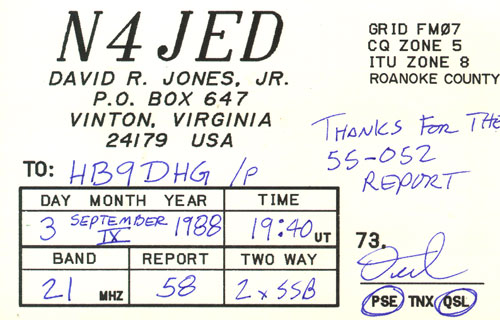 N4JED
DAVID R. JONES, JR.
P.O. BOX 647
VINTON, VIRGINIA
24179 USA
GRID FMØ7
CQ ZONE 5
ITU ZONE 8
ROANOKE COUNTY
THANKS FOR THE
55-052
REPORT
TO: HB9DHG /P
DAY MONTH YEAR TIME
3 SEPTEMBER IX 1988 19:40 UT
BAND REPORT TWO WAY
21 MHZ 58 2 x SSB
73.
PSE TNX QSL